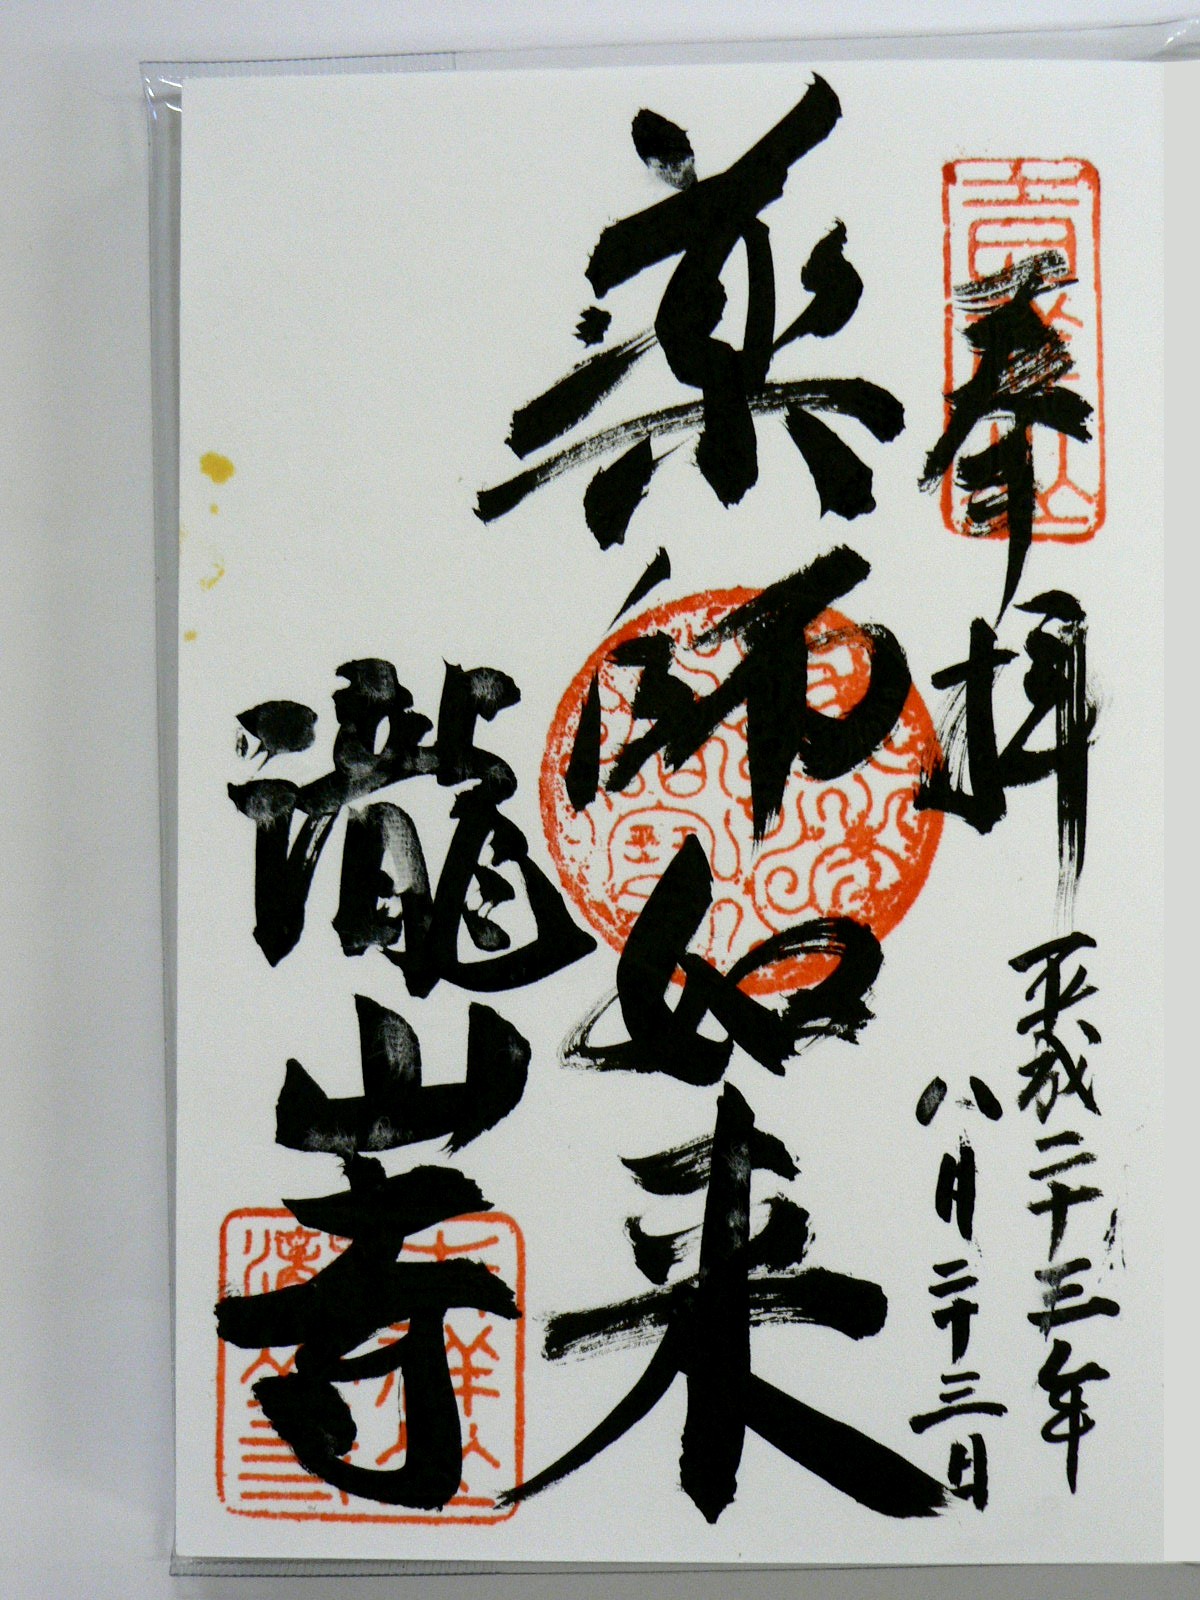 奉拝
平成二十三年
八月二十三日
薬師如来
瀧山寺